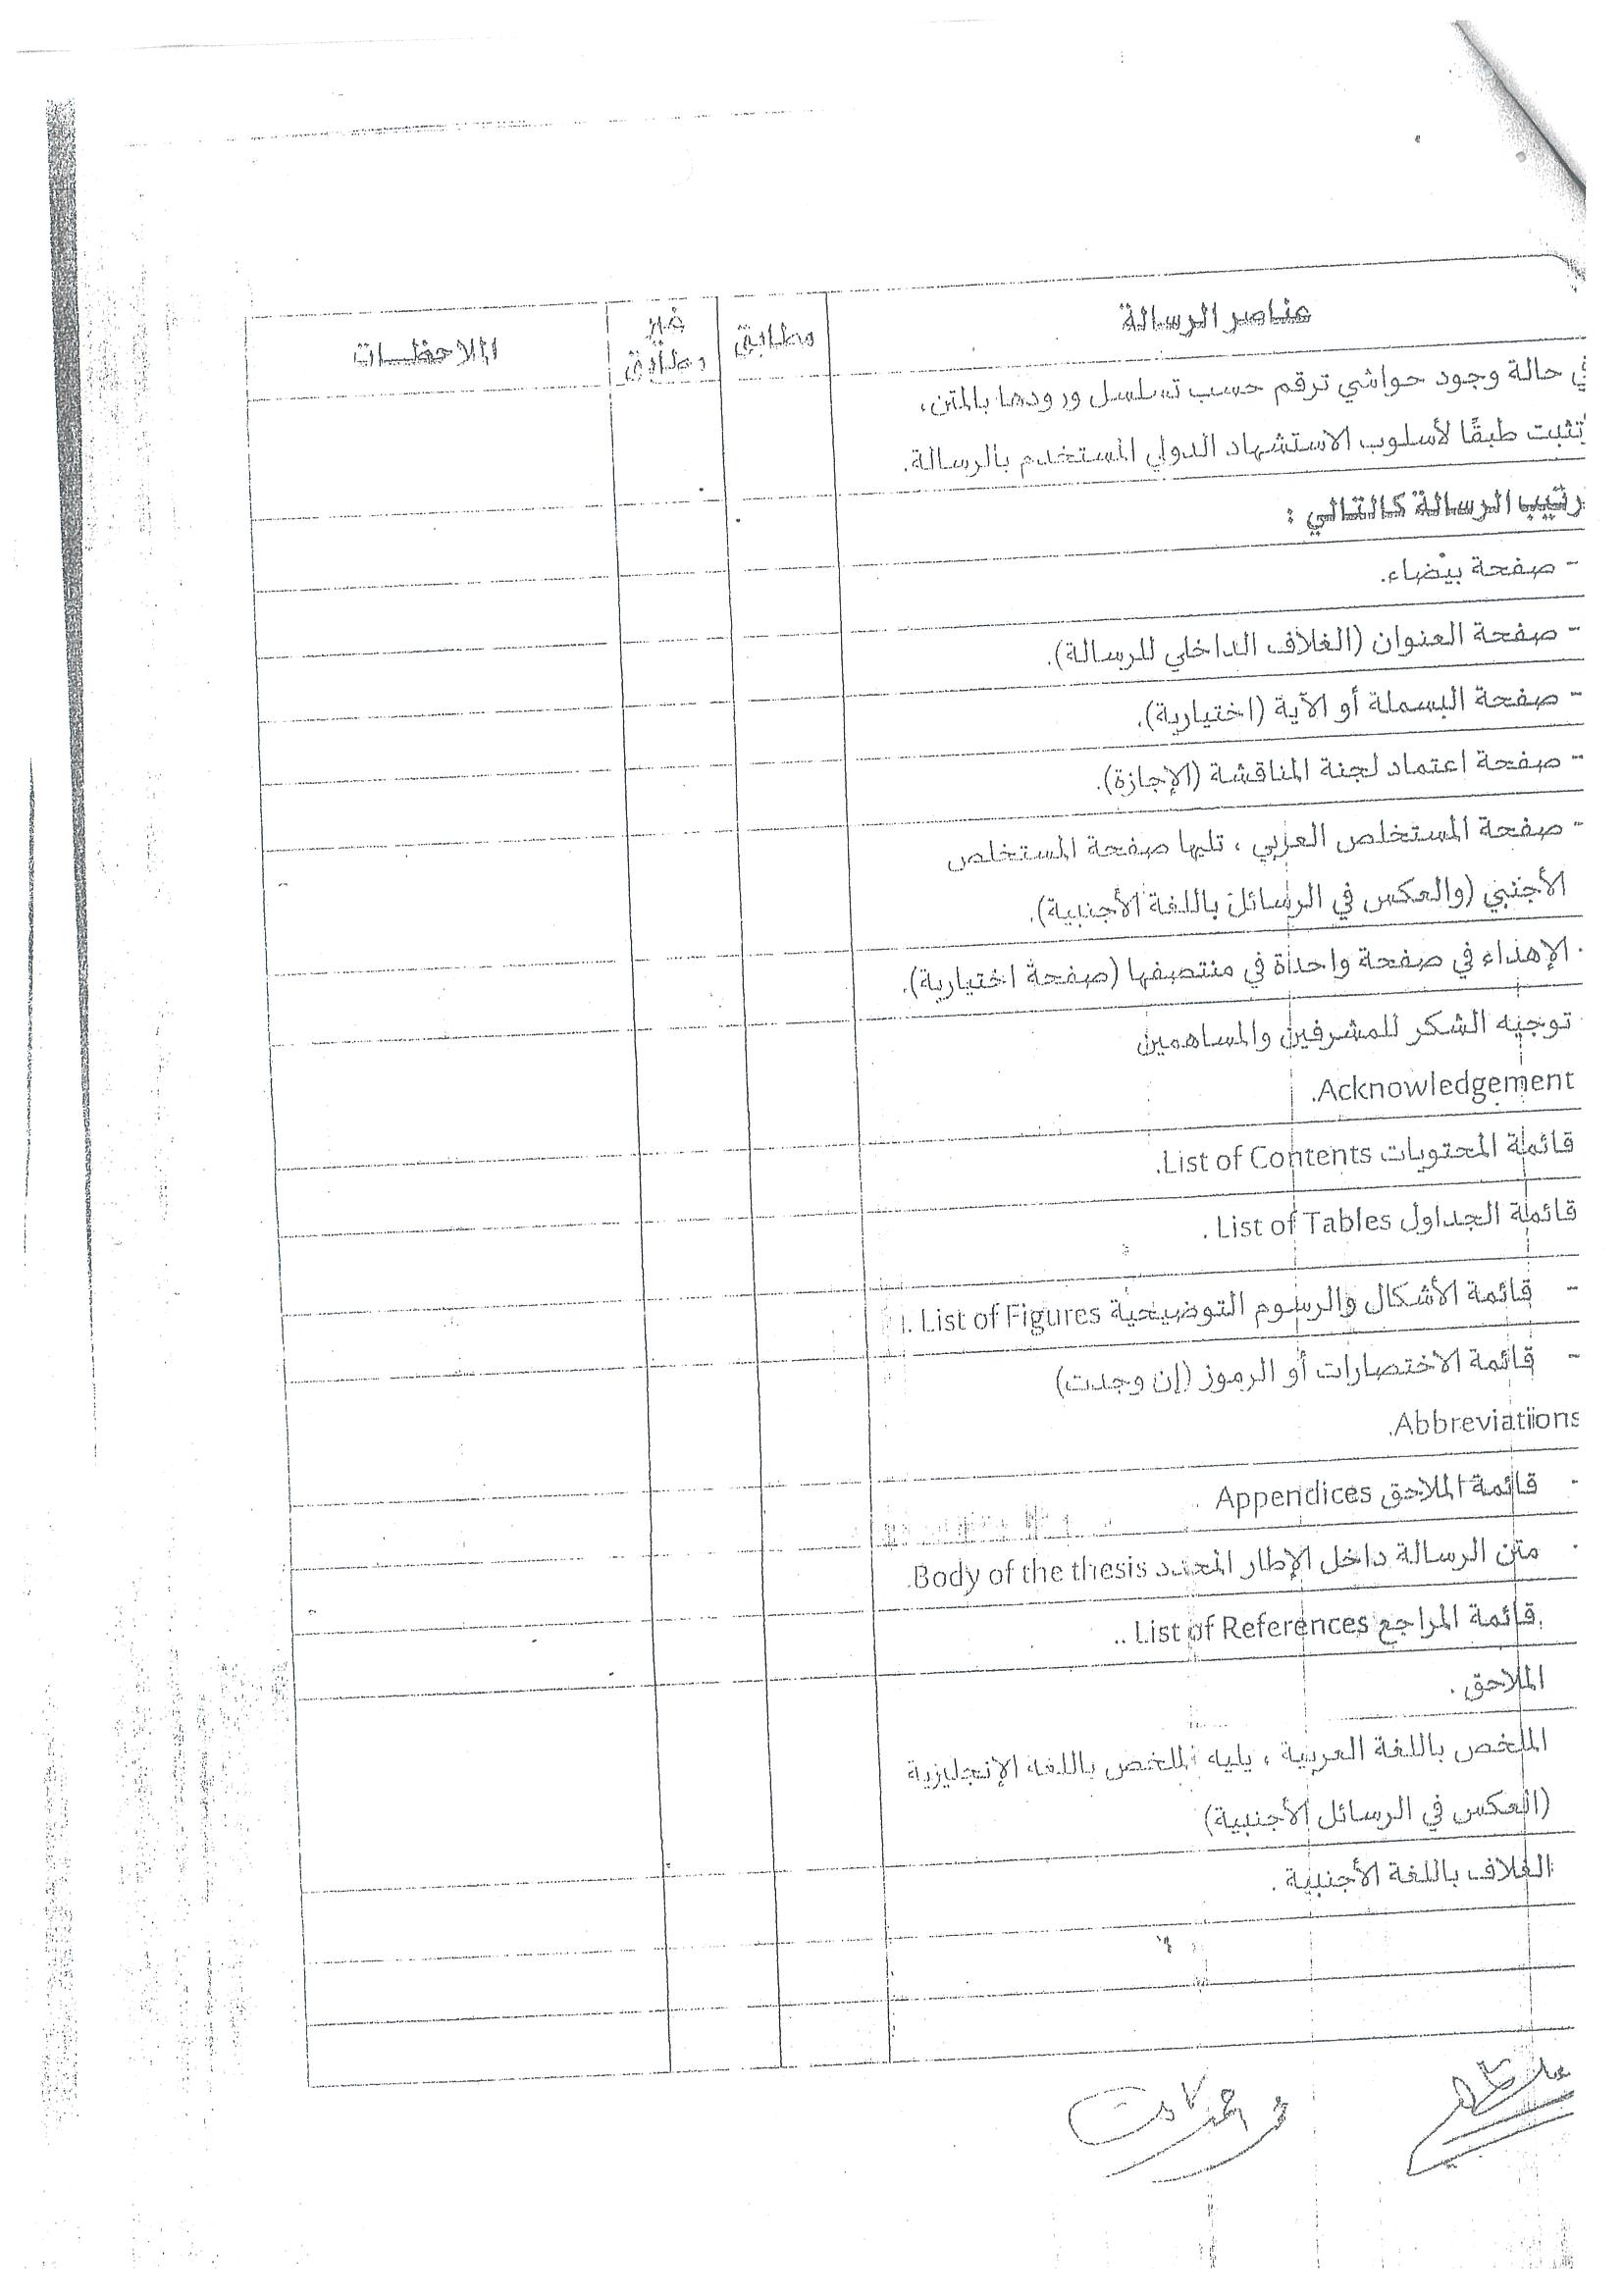 عناصر الرسالة مطابق غير مطابق الملاحظات
في حالة وجود حواشي ترقم حسب تسلسل ورودها بالمتن،
تثبت طبقًا لأسلوب الاستشهاد الدولي المستخدم بالرسالة.
رتيب الرسالة كالتالي :
- صفحة بيضاء.
- صفحة العنوان (الغلاف الداخلي للرسالة).
- صفحة البسملة أو الآية (اختيارية).
- صفحة اعتماد لجنة المناقشة (الإجازة).
- صفحة المستخلص العربي ، تليها صفحة المستخلص
الأجنبي (والعكس في الرسائل باللغة الأجنبية).
الإهداء في صفحة واحدة في منتصفها (صفحة اختيارية).
توجيه الشكر للمشرفين والمساهمين
Acknowledgement.
قائمة المحتويات List of Contents.
قائمة الجداول List of Tables .
- قائمة الأشكال والرسوم التوضيحية List of Figures .
- قائمة الاختصارات أو الرموز (إن وجدت)
Abbreviations.
- قائمة الملاحق Appendices
متن الرسالة داخل الإطار المحدد Body of the thesis.
قائمة المراجع List of References ..
الملاحق .
الملخص باللغة العربية ، يليه الملخص باللغة الإنجليزية
(العكس في الرسائل الأجنبية)
الغلاف باللغة الأجنبية .